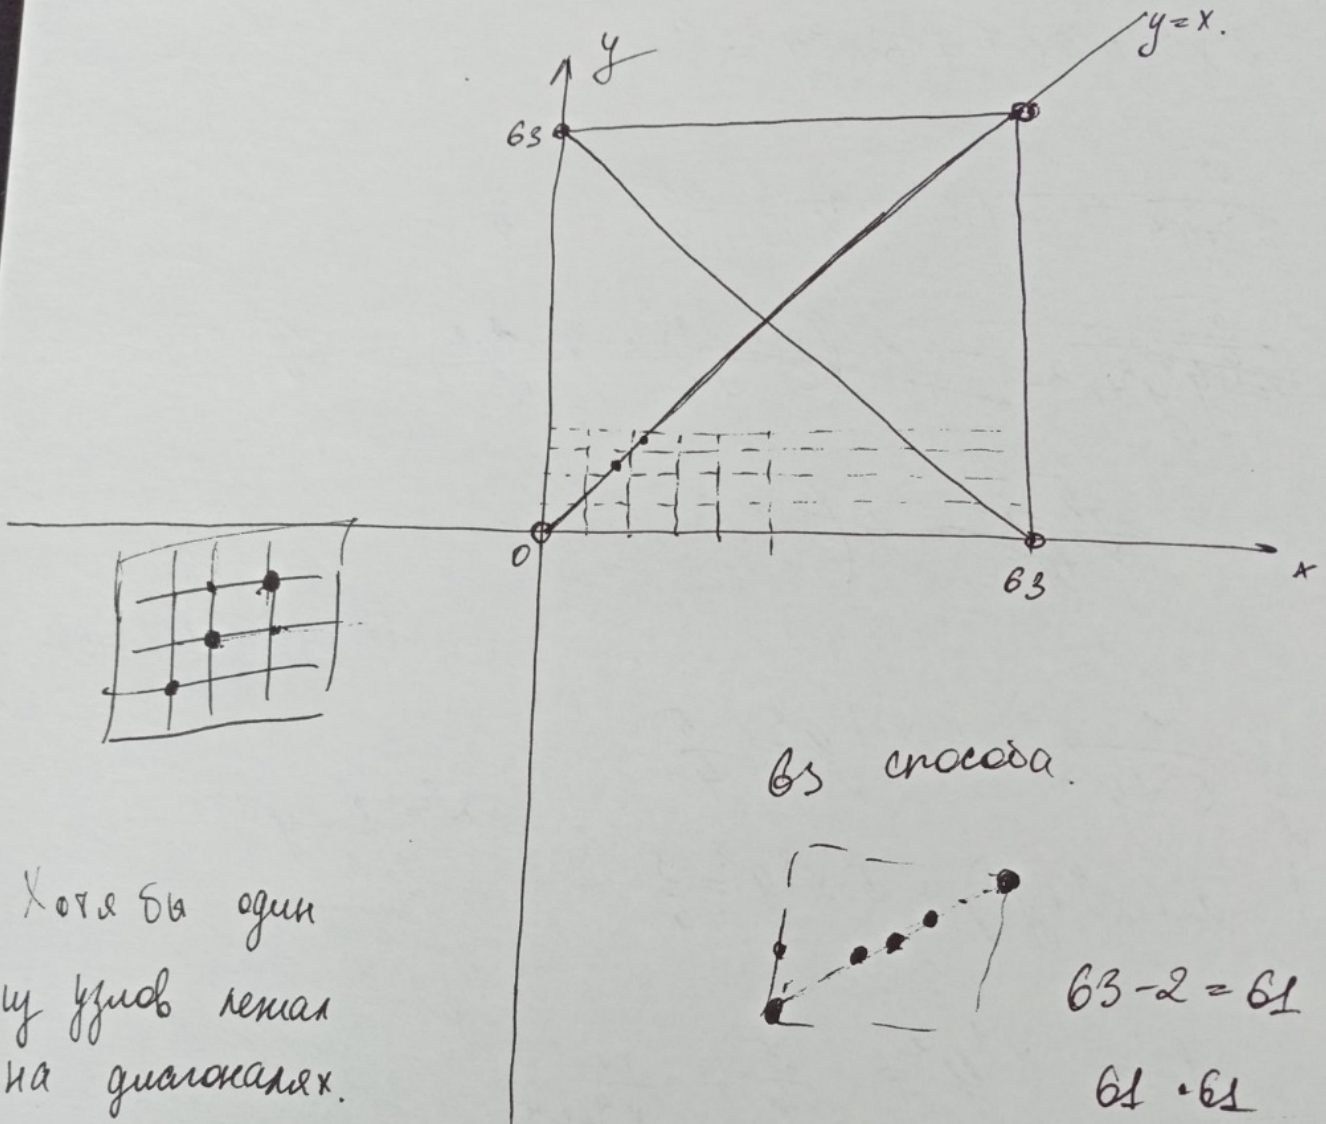 y
y = x.
63
0
63
x
63 способа.
Хотя бы один
из узлов лежал
на диагоналях.
63 - 2 = 61
61 · 61